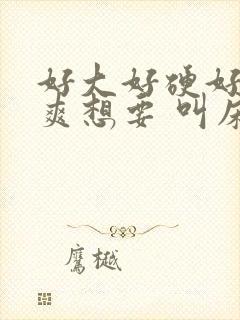 好大好硬好
爽想要 叫床
鹰樾